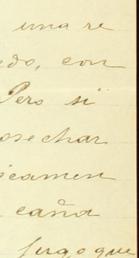 una re
edo, con
Pero si
osechar
icamen
caña
jugo que